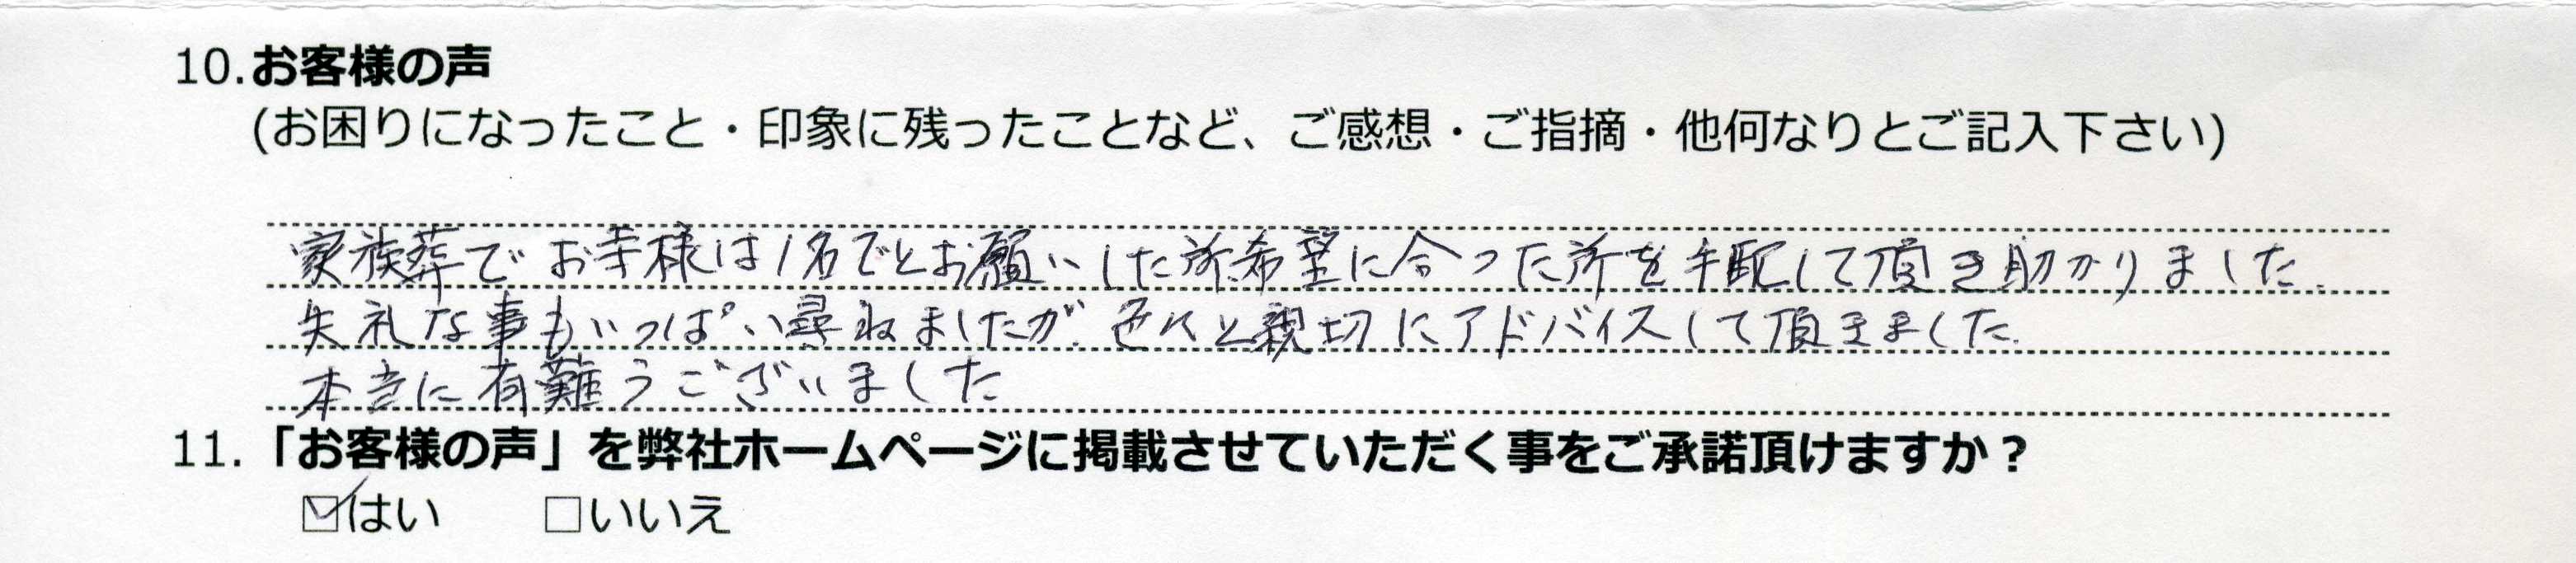 10.お客様の声
(お困りになったこと・印象に残ったことなど、ご感想・ご指摘・他何なりとご記入下さい)
家族葬でお寺様は1名でとお願いした所希望に合った所を手配して頂き助かりました.
失礼な事もいっぱい尋ねましたが.色々と親切にアドバイスして頂きました.
本当に有難うございました
11.「お客様の声」を弊社ホームページに掲載させていただく事をご承諾頂けますか？
☑はい □いいえ